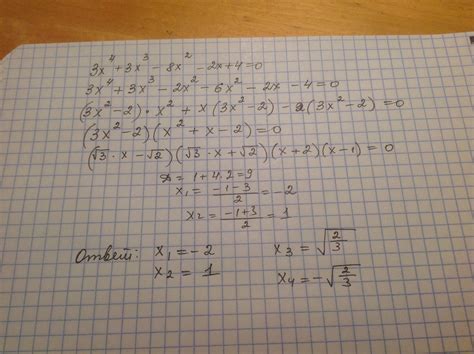 3x⁴+3x³-8x²-2x+4=0
3x⁴+3x³-2x²-6x²-2x-4=0
(3x²-2)·x²+x(3x²-2)-2(3x²-2)=0
(3x²-2)(x²+x-2)=0
(√3·x-√2)(√3·x+√2)(x+2)(x-1)=0
D=1+4·2=9
x₁=(-1-3)/2=-2
x₂=(-1+3)/2=1
Ответ: x₁=-2 x₃=√(2/3)
x₂=1 x₄=-√(2/3)